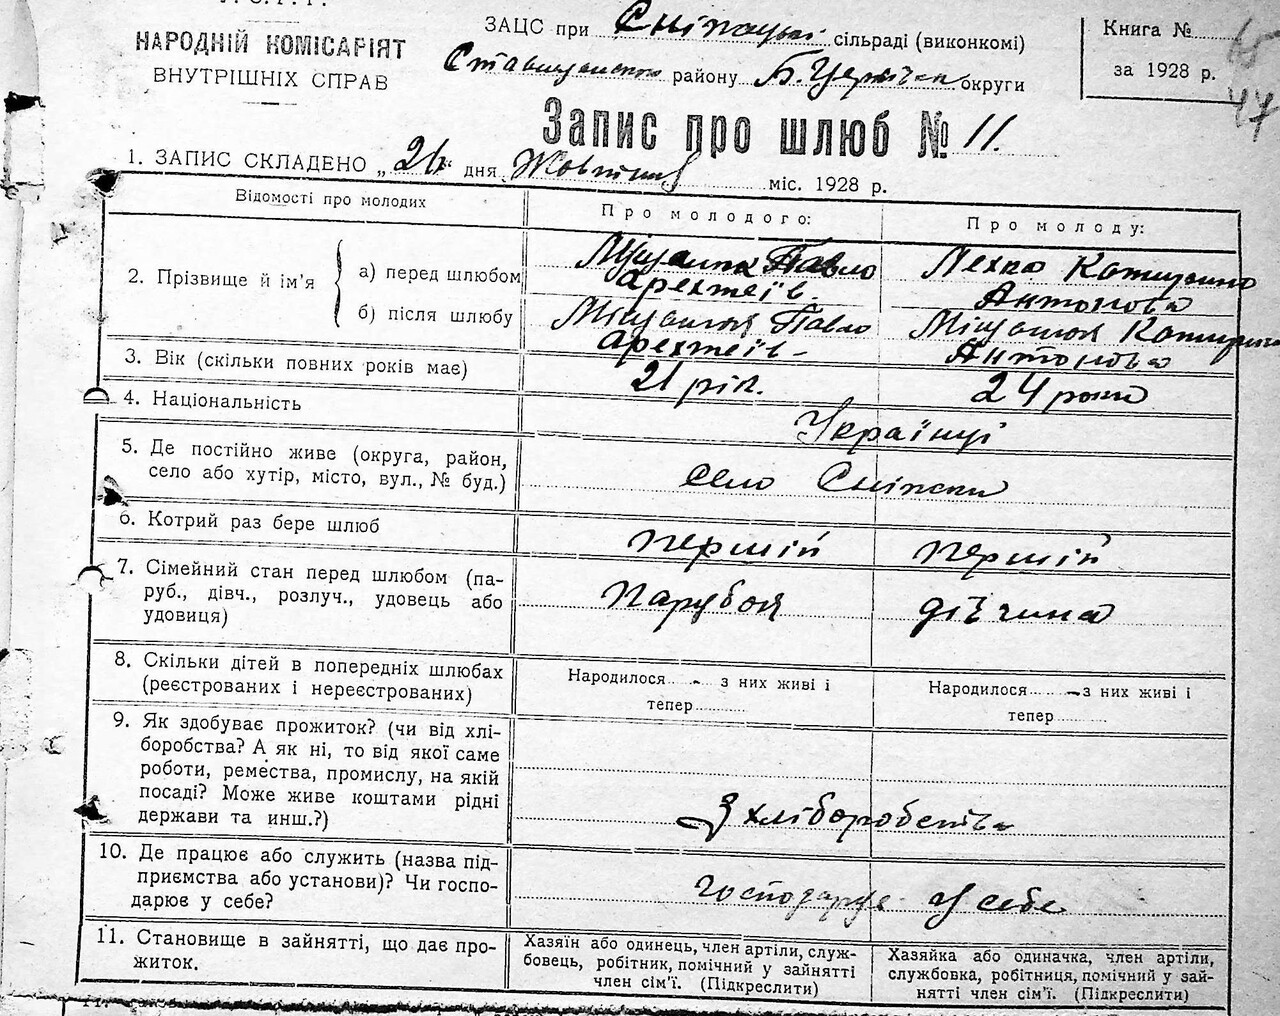 У.С.Р.Р.
НАРОДНІЙ КОМІСАРІЯТ
ВНУТРІШНІХ СПРАВ
ЗАЦС при сільраді (виконкомі)
району Б. Церківск округи
Книга №
за 1928 р.
47
Запис про шлюб № 11.
1. ЗАПИС СКЛАДЕНО „ дня Жовтня міс. 1928 р.
Відомості про молодих
Про молодого:
Про молоду:
2. Прізвище й ім'я
а) перед шлюбом
Павло
Антонова
б) після шлюбу
Міщанюк Павло
Міщанюк
Антонова
3. Вік (скільки повних років має)
21 рік.
24 роки
4. Національність
Українці
5. Де постійно живе (округа, район,
село або хутір, місто, вул., № буд.)
село
6. Котрий раз бере шлюб
першій
першій
7. Сімейний стан перед шлюбом (па-
руб., дівч., розлуч., удовець або
удовиця)
парубок
дівчина
8. Скільки дітей в попередніх шлюбах
(реєстрованих і нереєстрованих)
Народилося - з них живі і
тепер
Народилося - з них живі і
тепер
9. Як здобуває прожиток? (чи від хлі-
боробства? А як ні, то від якої саме
роботи, ремества, промислу, на якій
посаді? Може живе коштами рідні
держави та инш.?)
З хліборобства
10. Де працює або служить (назва під-
приємства або установи)? Чи госпо-
дарює у себе?
господарує у себе
11. Становище в зайнятті, що дає про-
житок.
Хазяїн або одинець, член артіли, служ-
бовець, робітник, помічний у зайнятті
член сім'ї. (Підкреслити)
Хазяйка або одиначка, член артіли,
службовка, робітниця, помічний у зай-
нятті член сім'ї. (Підкреслити)